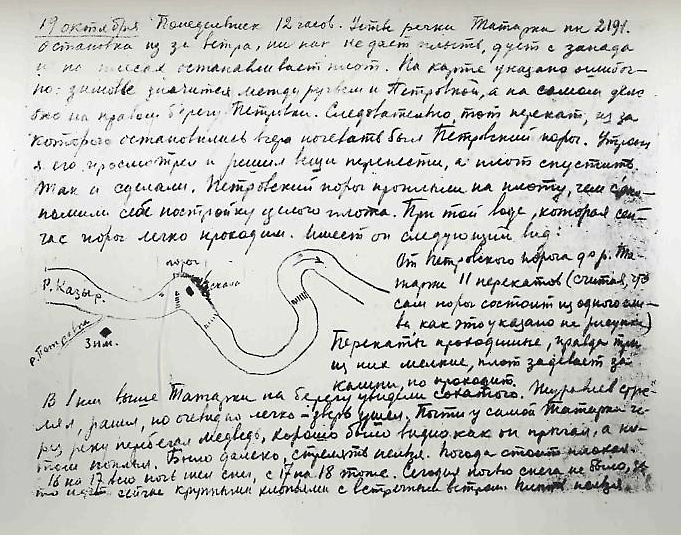 19 октября Понедельник 12 часов. Устье речки Татарки пк 2191.
Остановка из за ветра, ни как не дает плыть, дует с запада
и на плесах останавливает плот. На карте указано ошибоч-
но: зимовье значится между ручьем и Петровкой, а на самом деле
оно на правом берегу Петровки. Следовательно, тот перекат, из за
которого остановились вчера ночевать был Петровский порог. Утром
я его просмотрел и решил вещи перенести, а плот спустить.
Так и сделали. Петровский порог проплыли на плоту, чем сэко-
номили себе постройку целого плота. При той воде, которая сей-
час порог легко проходим. Имеет он следующий вид:
порог
скала
Р. Казыр.
р. Петровка
Зим.
От Петровского порога до р. Та-
тарки 11 перекатов (считая, что
сам порог состоит из одного сли-
ва как это указано на рисунке)
Перекаты проходимые, правда три
из них мелкие, плот задевает за
камни, но проходит.
В 1 км выше Татарки на берегу увидели сохатого. Журавлев стре-
лял, ранил, но очевидно легко - зверь ушел. Почти у самой Татарки че-
рез реку перебегал медведь, хорошо было видно как он прыгал, а по-
том поплыл. Было далеко, стрелять нельзя. Погода стоит плохая.
16 на 17 всю ночь шел снег, с 17 на 18 тоже. Сегодня ночью снега не было, за
то идет сейчас крупными хлопьями с встречным ветром. Плыть нельзя